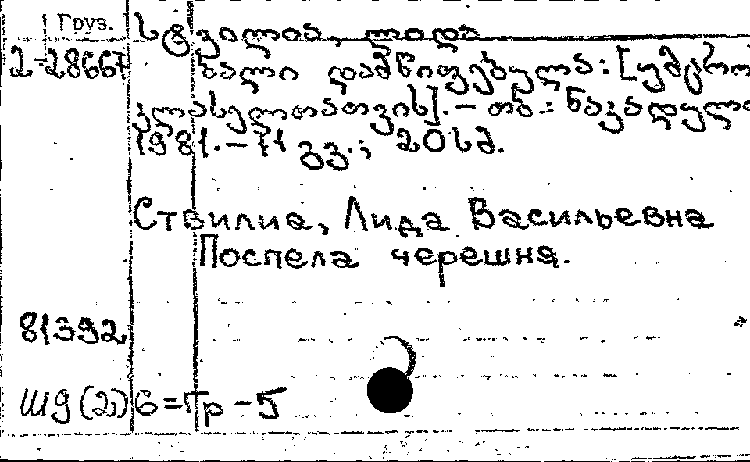 Груз.
სტვილია, ლიდა
2-28667
ბალი დამწიფებულა: [უმცრო
კლასელთათვის]. – თბ.: ნაკადული
1981. – 71 გვ.; 20 სმ.
Ствилиа, Лида Васильевна
Поспела черешня.
81392
Ш9(2)6=Гр-5